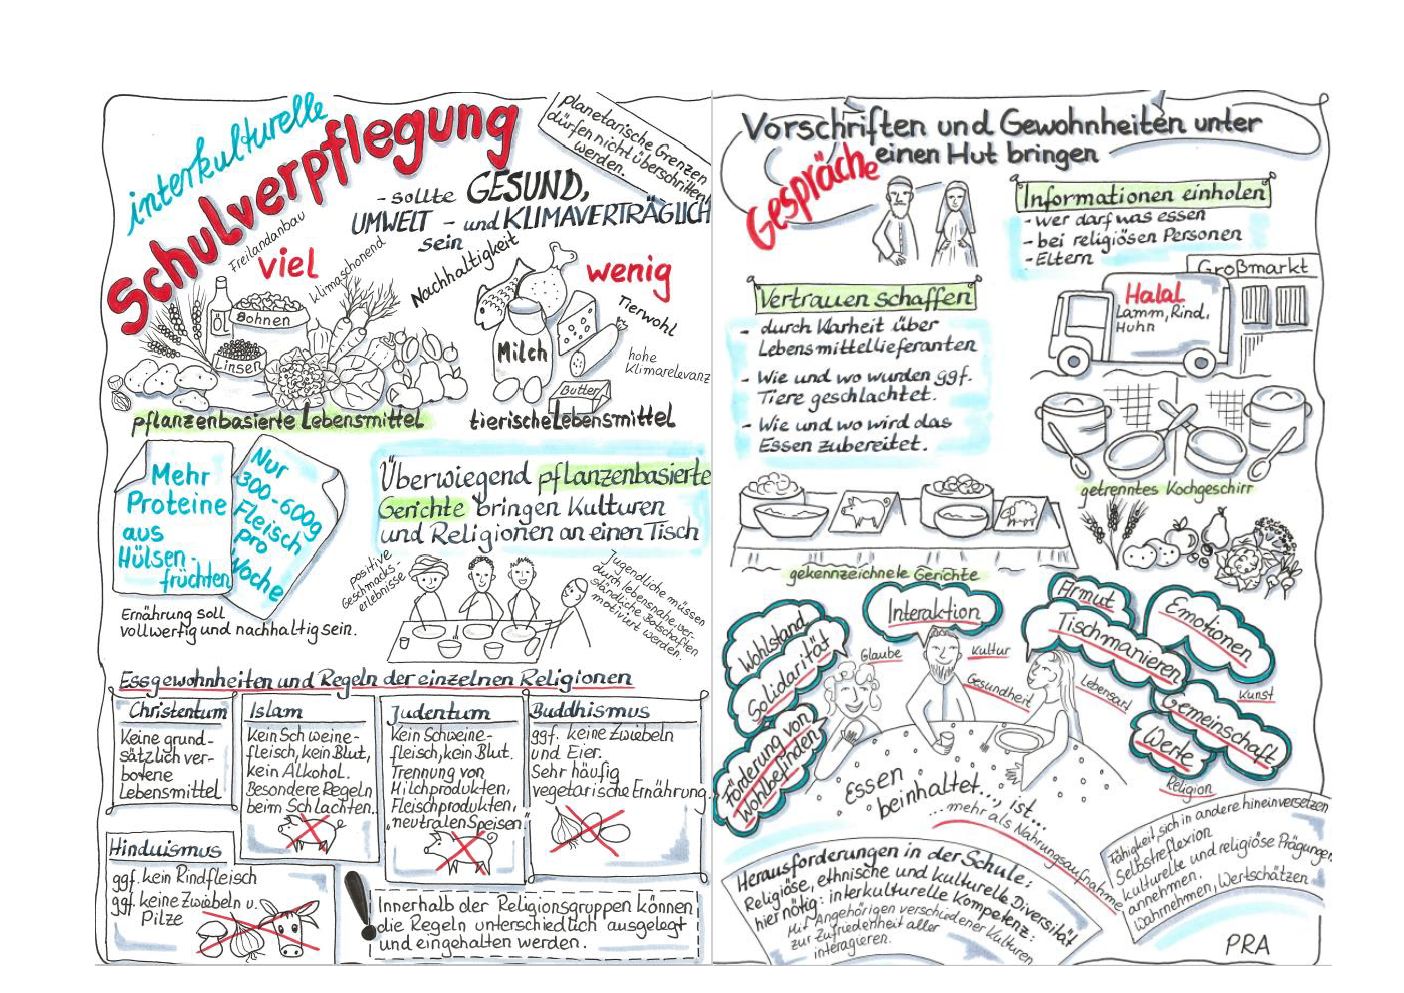 interkulturelle
Schulverpflegung
planetarische Grenzen
dürfen nicht überschritten
werden.
- sollte GESUND,
UMWELT - und KLIMAVERTRÄGLICH
sein
Freilandanbau
viel
klimaschonend
Nachhaltigkeit
wenig
Tierwohl
hohe
Klimarelevanz
ÖL
Bohnen
Linsen
Milch
Butter
pflanzenbasierte Lebensmittel
tierische Lebensmittel
Mehr
Proteine
aus
Hülsen-
früchten
Nur
300-600g
Fleisch
pro
Woche
Ernährung soll
vollwertig und nachhaltig sein.
Überwiegend pflanzenbasierte
Gerichte bringen Kulturen
und Religionen an einen Tisch
positive
Geschmacks-
erlebnisse
Jugendliche müssen
durch lebensnahe, ver-
ständliche Botschaften
motiviert werden.
Essgewohnheiten und Regeln der einzelnen Religionen
Christentum
Keine grund-
sätzlich ver-
botene
Lebensmittel
Islam
Kein Schweine-
fleisch, kein Blut,
kein Alkohol.
Besondere Regeln
beim Schlachten.
Judentum
Kein Schweine-
fleisch, kein Blut.
Trennung von
Milchprodukten,
Fleischprodukten,
"neutralen Speisen"
Buddhismus
ggf. keine Zwiebeln
und Eier.
Sehr häufig
vegetarische Ernährung.
Hinduismus
ggf. kein Rindfleisch
ggf. keine Zwiebeln u.
Pilze
! Innerhalb der Religionsgruppen können
die Regeln unterschiedlich ausgelegt
und eingehalten werden.
Vorschriften und Gewohnheiten unter
einen Hut bringen
Gespräche
Informationen einholen
- wer darf was essen
- bei religiösen Personen
- Eltern
Vertrauen schaffen
- durch Klarheit über
Lebensmittellieferanten
- Wie und wo wurden ggf.
Tiere geschlachtet.
- Wie und wo wird das
Essen zubereitet.
Großmarkt
Halal
Lamm, Rind,
Huhn
getrenntes Kochgeschirr
gekennzeichnete Gerichte
Wohlstand
Solidarität
Förderung von
Wohlbefinden
Interaktion
Armut
Tischmanieren
Emotionen
Gemeinschaft
Werte
Glaube
Kultur
Gesundheit
Lebensart
Kunst
Religion
Essen
beinhaltet..., ist...
...mehr als Nahrungsaufnahme
Herausforderungen in der Schule:
Religiöse, ethnische und kulturelle Diversität
hier nötig: interkulturelle Kompetenz:
Mit Angehörigen verschiedener Kulturen
zur Zufriedenheit aller
interagieren.
Fähigkeit, sich in andere hineinversetzen
Selbstreflexion
kulturelle und religiöse Prägungen
annehmen.
Wahrnehmen, Wertschätzen
PRA